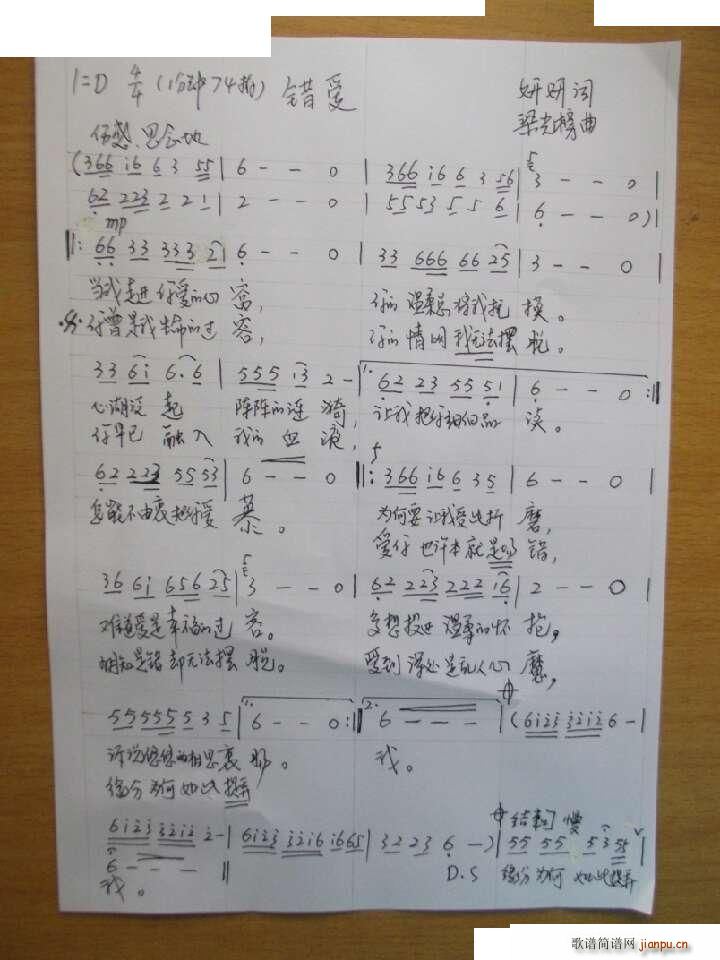 1=D 4/4 (1分钟74拍) 错爱 妍妍词
梁光榜曲
伤感、思念地
(366 i6 6 3 55 | 6 - - 0 | 366 i6 6 3 56 | 3 - - 0 |
62 223 2 2 1 | 2 - - 0 | 55 53 5 5 6 | 6 - - 0) |
mp
‖: 66 33 333 21 | 6 - - 0 | 33 666 66 25 | 3 - - 0 |
当我走进你爱的心窝, 你的温柔总将我抚摸。
你曾是我生命的过客, 你的情网我无法摆脱。
33 6i 6·6 | 555 i3 2 - | 1. 62 23 55 51 | 6 - - 0 :‖
心湖泛起 阵阵的涟漪, 让我把你细细品读。
你早已融入 我的血液,
62 223 55 53 | 6 - - 0 ‖: 366 i6 6 35 | 6 - - 0 |
怎能不由衷把你爱慕。 为何要让我受此折磨,
爱你也许本就是个错,
36 6i 656 25 | 3 - - 0 | 62 223 222 i6 | 2 - - 0 |
难道爱是幸福的过客。 多想投进温柔的怀抱,
明知是错却无法摆脱。 爱到深处是乱人心魔,
55555 5 3 5 | 1. 6 - - 0 :‖ 2. 6 - - - | (6i23 32i2 6 - |
诉说悠悠的相思衷肠。 我。
缘分为何如此捉弄
6i23 32i2 2 - | 6i23 32i6 i665 | 3 2 2 3 6 - ) | 结束句 慢 55 55 5 3 55
6 - - - ‖ D.S 缘分为何 如此捉弄
我。
歌谱简谱网
jianpu.cn